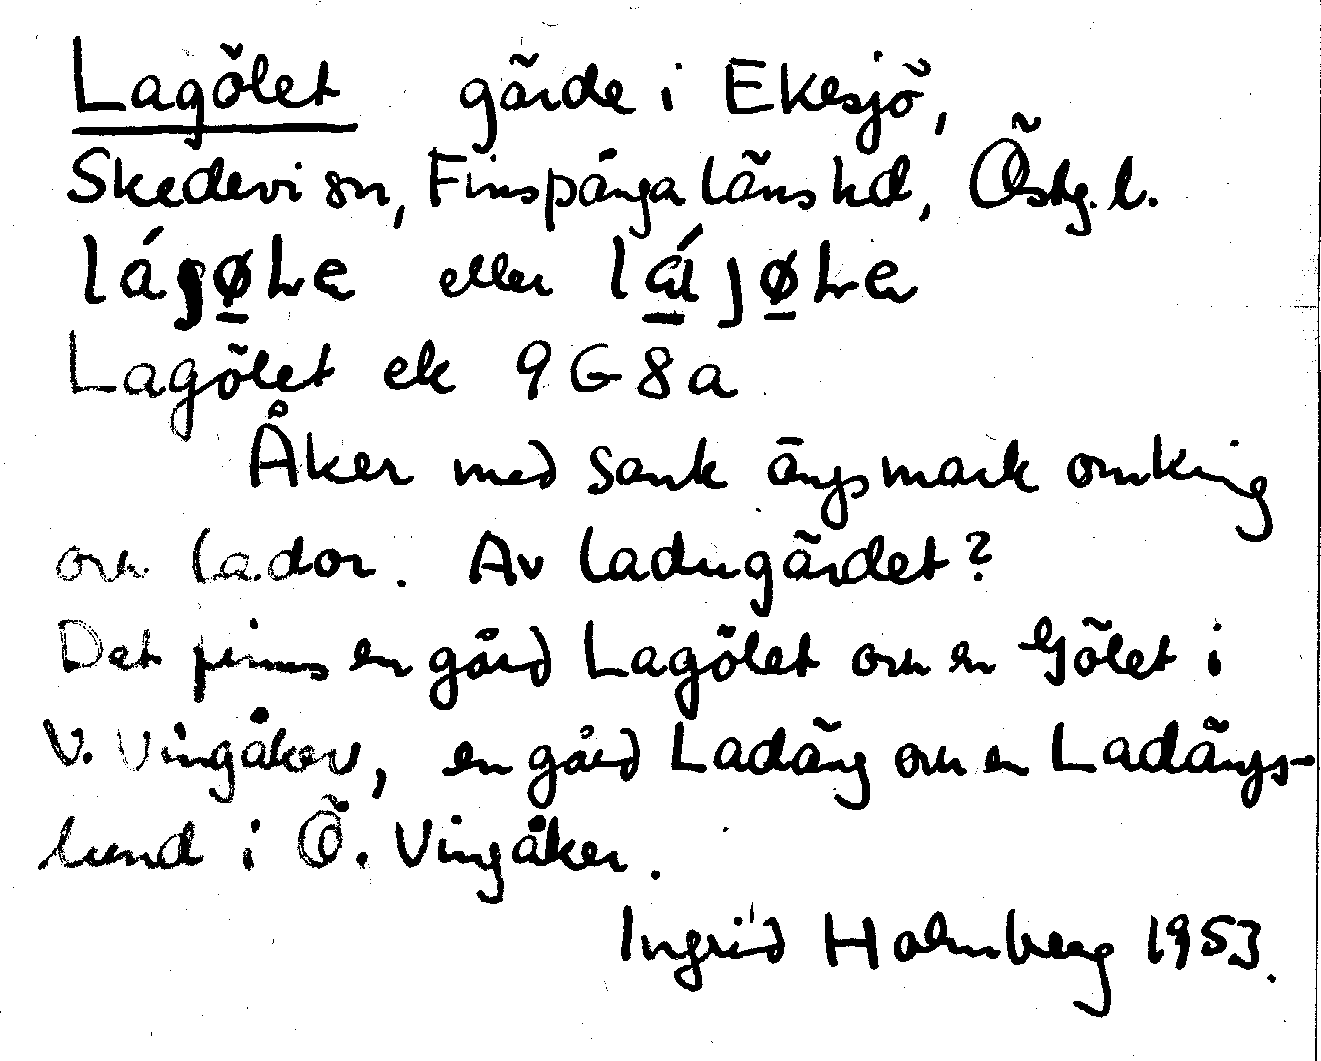 Lagölet gärde i Ekesjö,
Skedevi sn, Finspånga läns hd, Östg. l.
lágøLe eller lájøLe
Lagölet ek 9G8a
Åker med sank ängsmark omkring
och lador. Av ladugärdet?
Det finns en gård Lagölet och en Gölet i
V. Vingåker, en gård Ladäng och en Ladängs-
lund i Ö. Vingåker.
Ingrid Holmberg 1953.